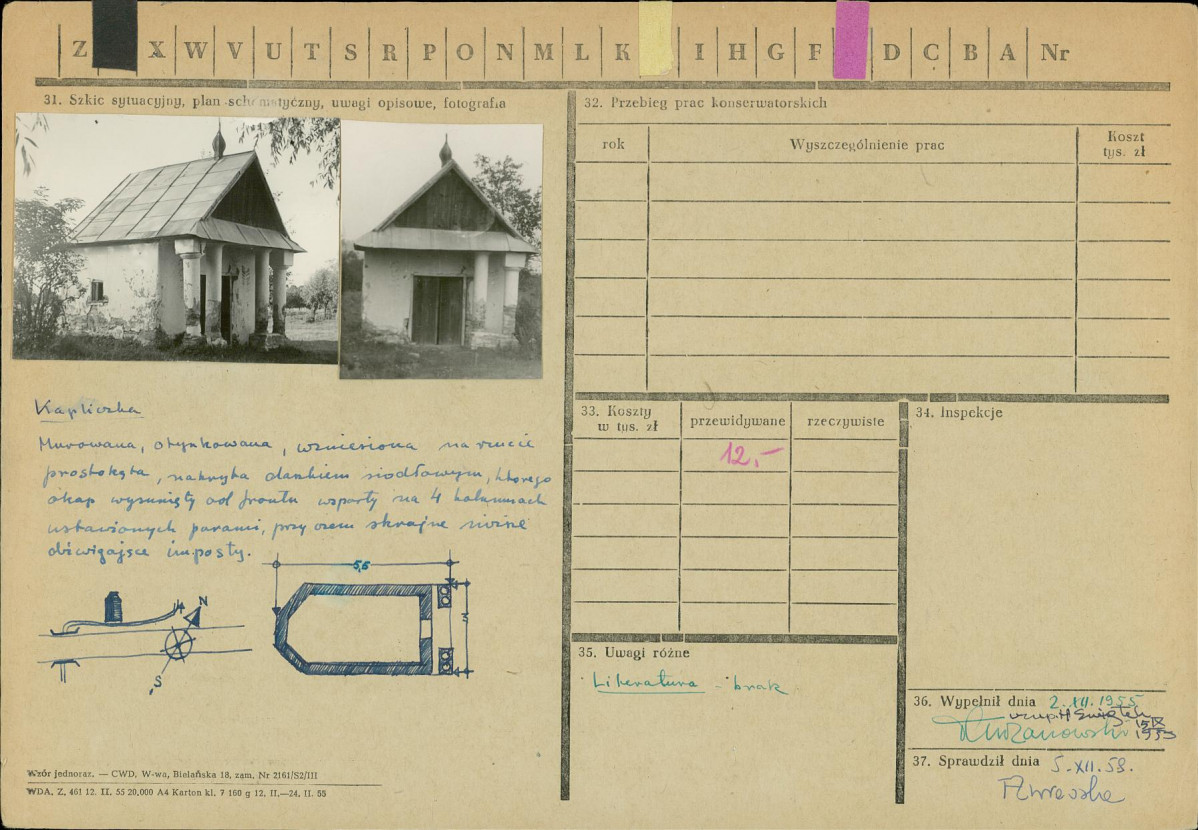 Z X W V U T S R P O N M L K I H G F D C B A Nr
31. Szkic sytuacyjny, plan schematyczny, uwagi opisowe, fotografia
Kapliczka
Murowana, otynkowana, wzniesiona na rzucie
prostokąta, nakryta daszkiem siodłowym, którego
okap wysunięty od frontu wsparty na 4 kolumnach
ustawionych parami, przy czem skrajne
dźwigające imposty.
5,5
3
N
S
Wzór jednoraz. — CWD, W-wa, Bielańska 18, zam. Nr 2161/S2/III
WDA. Z. 461 12. II. 55 20,000 A4 Karton kl. 7 160 g 12. II.—24. II. 55
32. Przebieg prac konserwatorskich
rok
Wyszczególnienie prac
Koszt
tys. zł
33. Koszty
w tys. zł
przewidywane
rzeczywiste
12,-
34. Inspekcje
35. Uwagi różne
Literatura - brak
36. Wypełnił dnia 2. XII. 1955
15 IX
1959
37. Sprawdził dnia 5. XII. 58.